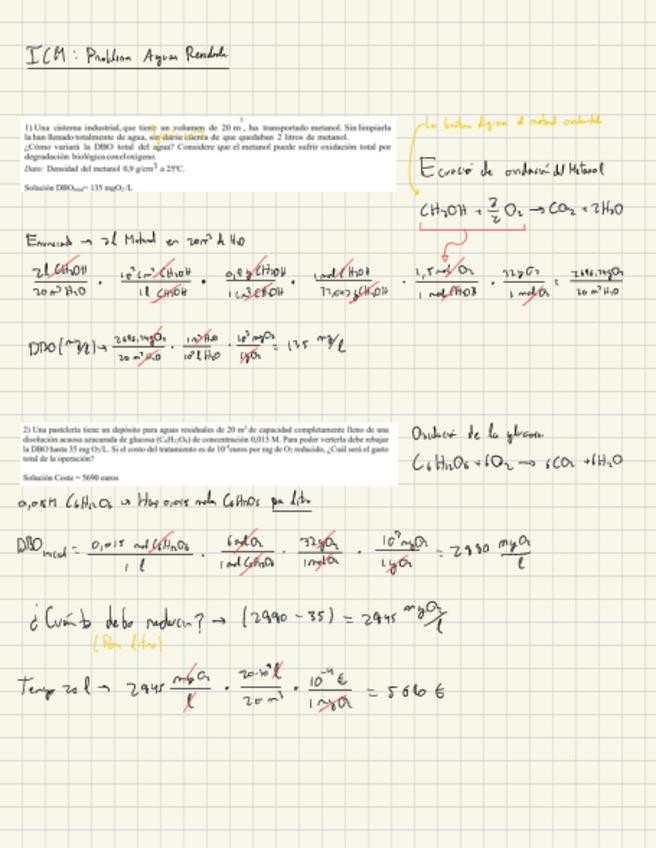 ICM: Problema Aguas Residuales
1) Una cisterna industrial, que tiene un volumen de 20 m3, ha transportado metanol. Sin limpiarla
la han llenado totalmente de agua, sin darse cuenta de que quedaban 2 litros de metanol.
¿Cómo variará la DBO total del agua? Considere que el metanol puede sufrir oxidación total por
degradación biológica con el oxígeno.
Dato: Densidad del metanol 0,9 g/cm3 a 25ºC.
Solución DBOtotal= 135 mgO2/L
Ecuación de oxidación del Metanol
CH3OH + 3/2 O2 → CO2 + 2H2O
Enunciado → 2l Metanol en 20m3 de H2O
2l CH3OH / 20 m3 H2O · 10^3 cm3 CH3OH / 1l CH3OH · 0,9 g CH3OH / 1 cm3 CH3OH · 1 mol CH3OH / g CH3OH · 1,5 mol O2 / 1 mol CH3OH · 32 g O2 / 1 mol O2 = gO2 / 20 m3 H2O
DBO (mg/l) → gO2 / 20 m3 H2O · 1m3 H2O / 10^3 l H2O · 10^3 mgO2 / 1gO2 = 135 mg/l
2) Una pastelería tiene un depósito para aguas residuales de 20 m3 de capacidad completamente lleno de una
disolución acuosa azucarada de glucosa (C6H12O6) de concentración 0,015 M. Para poder verterla debe rebajar
la DBO hasta 35 mg O2/L. Si el costo del tratamiento es de 10-4 euros por mg de O2 reducido, ¿Cuál será el gasto
total de la operación?
Solución Coste = 5690 euros
Oxidación de la glucosa
C6H12O6 + 6O2 → 6CO2 + 6H2O
0,015M C6H12O6 → Hay 0,015 mols C6H12O6 por litro
DBO inicial = 0,015 mol C6H12O6 / 1 l · 6 mol O2 / 1 mol C6H12O6 · 32gO2 / 1 mol O2 · 10^3 mgO2 / 1gO2 = 2980 mgO2 / l
¿Cuánto debo reducir? → (2980 - 35) = 2945 mgO2/l
(Por litro)
Tengo 20 l → 2945 mgO2 / l · 20·10^3 l / 20 m3 · 10^-4 € / 1 mgO2 = €